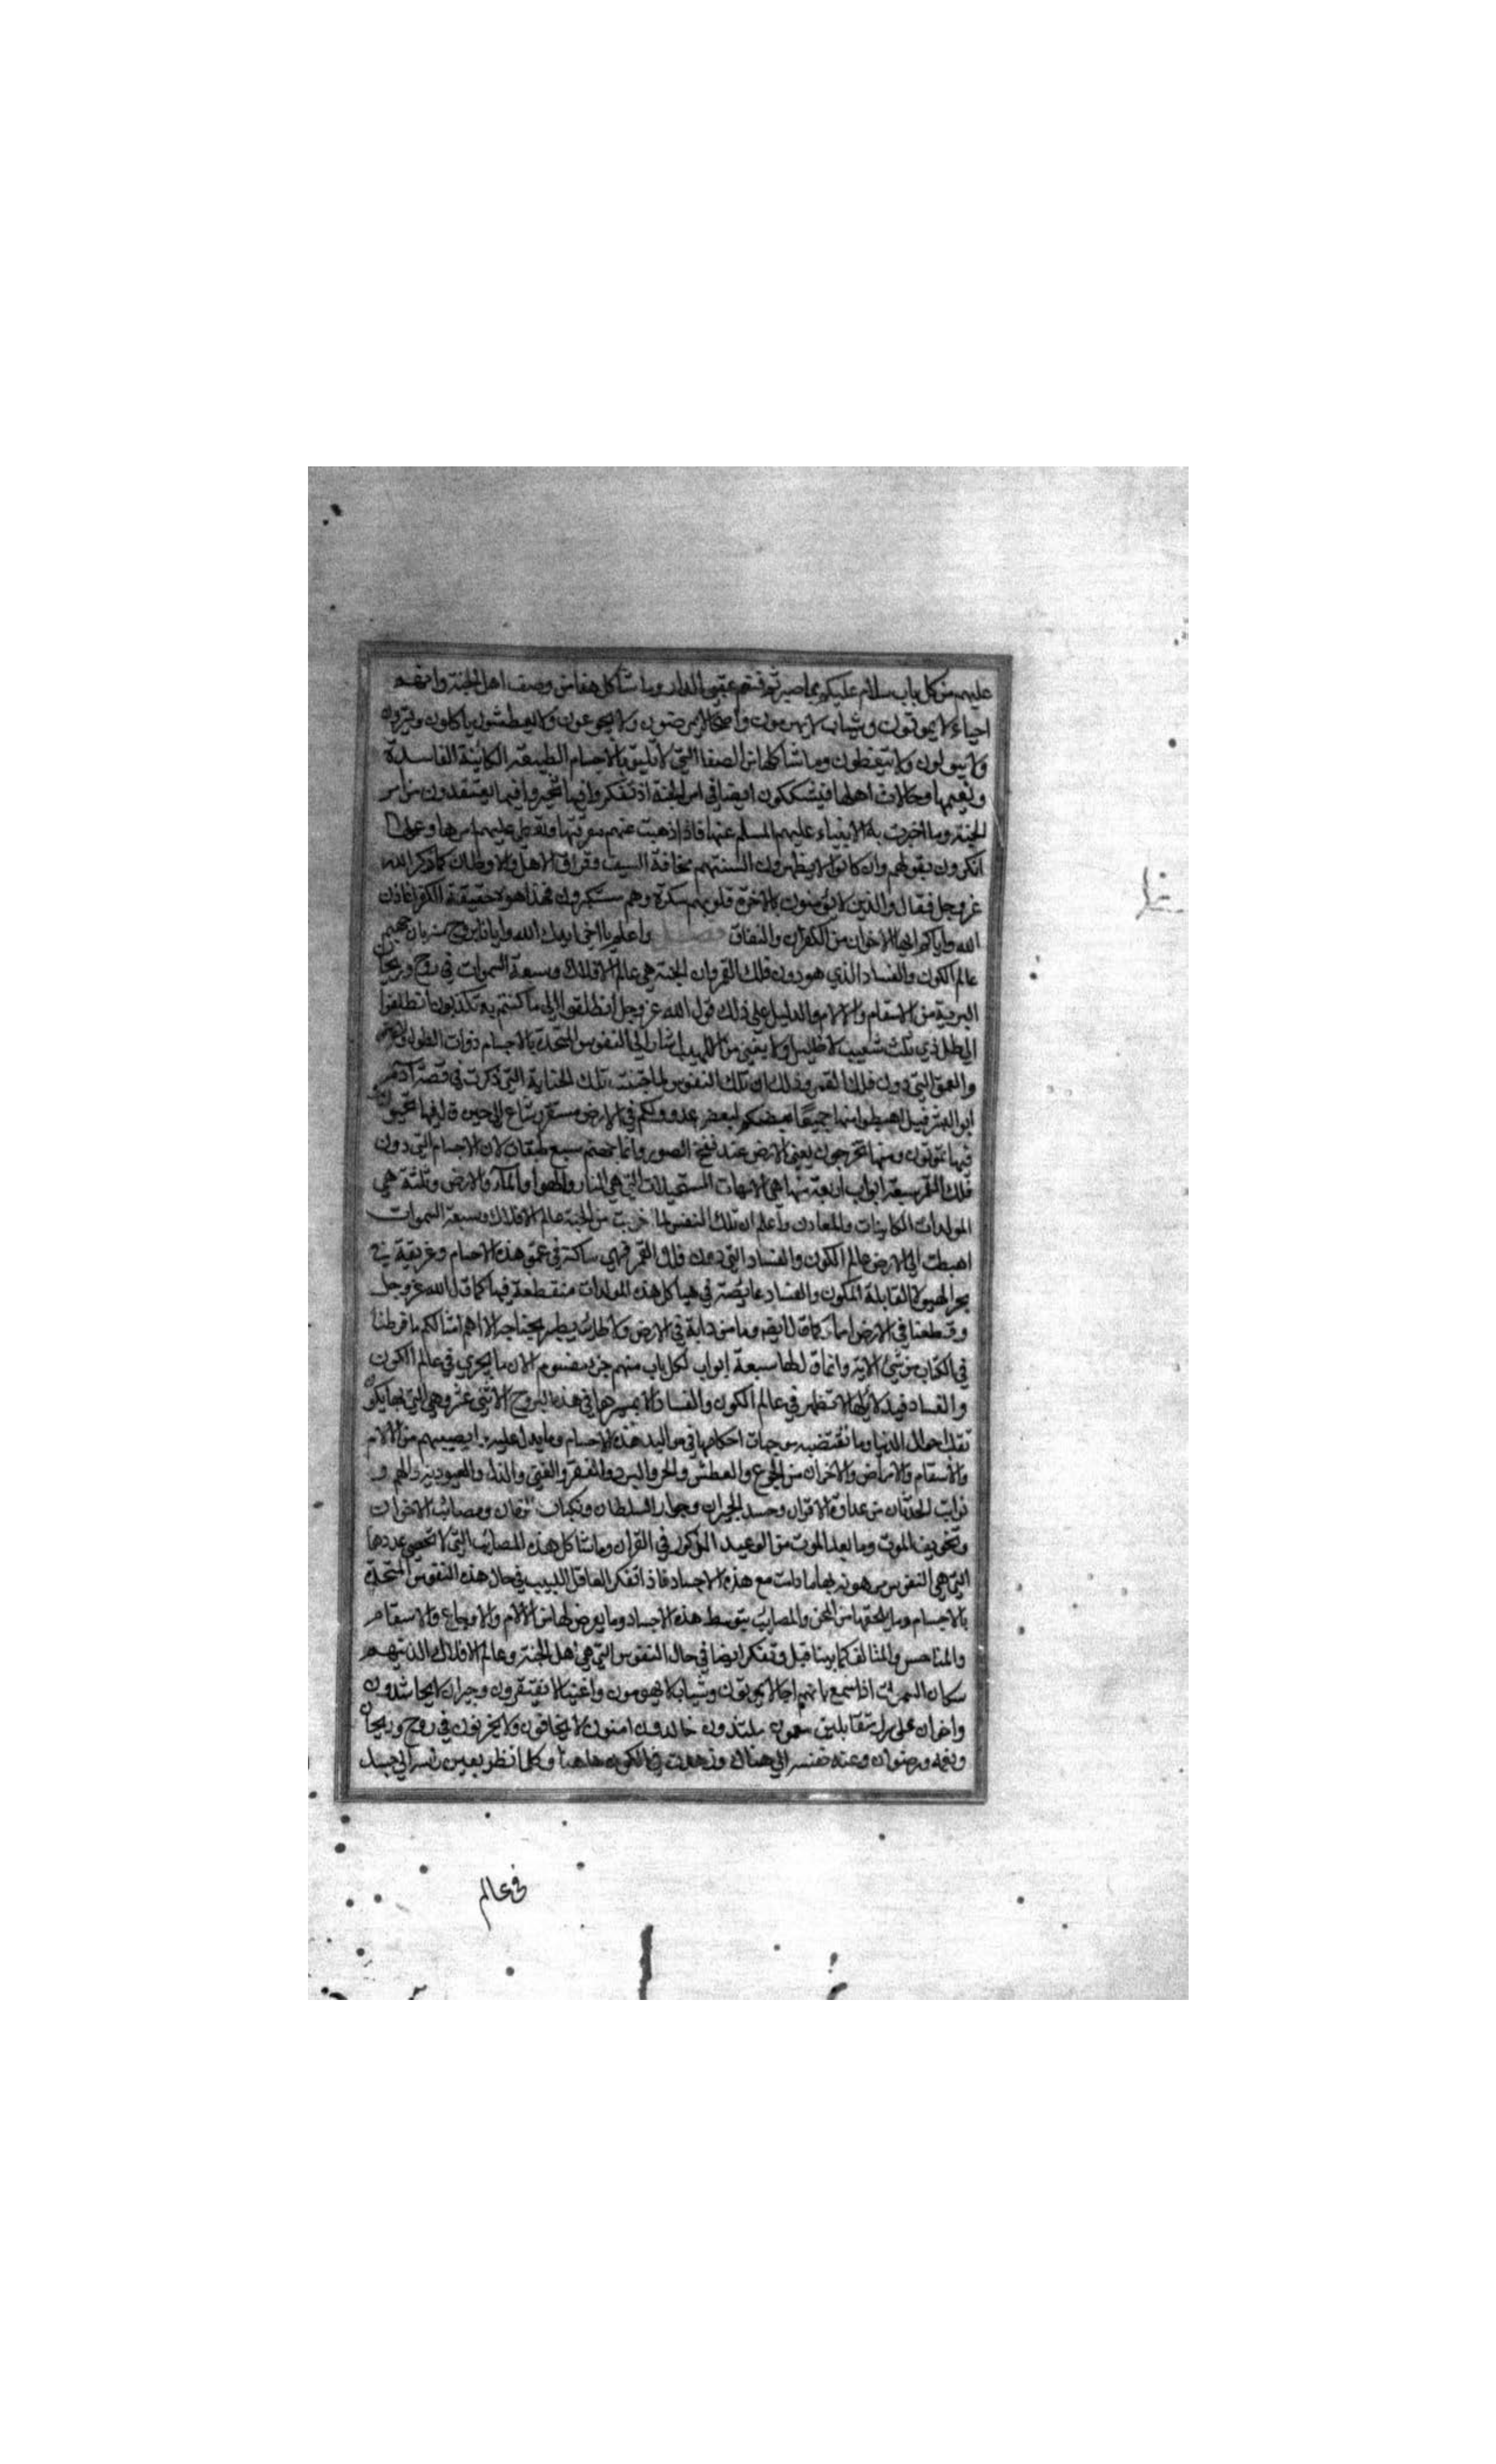 عليهم من كل باب سلام عليكم بما صبرتم فنعم عقبى الدار وما شاكل هذا من وصف اهل الجنة وانهم
احياء لا يموتون وشباب لا يهرمون واصحاء لا يمرضون ولا يجوعون ولا يعطشون ياكلون ويشربون
ولا يبولون ولا يتغوطون وما شاكلها من الصفا التي لا تليق بالاجسام الطبيعية الكائنة الفاسدة
ونعيمها وحالات اهلها فيشككون ايضا في امر الجنة اذ تفكروا فيها تحيروا فيما يعتقدون من امر
الجنة وما اخبرت به الانبياء عليهم السلم عنها فاذا ذهبت عنهم معرفتها وتعطل عليهم امرها وعلى
انكرون بقولهم وان كانوا لا يظهرون السنتهم مخافة السيف وفراق الاهل والاوطان كما ذكر الله
عز وجل فقال والذين لا يؤمنون بالاخرة قلوبهم منكرة وهم مستكبرون فهذا هو حقيقة الكفر اعاذن
الله واياكم ايها الاخوان من الكفران والنفاق فصل واعلم يا اخي ايدك الله وايانا بروح منه بان جهنم
عالم الكون والفساد الذي هو دون فلك القمر وان الجنة هي عالم الافلاك وسعة السموات في روح وريحان
البرية من الاسقام والالام والدليل على ذلك قول الله عز وجل انطلقوا الى ما كنتم به تكذبون انطلقوا
الى ظل ذي ثلث شعب لا ظليل ولا يغني من اللهب اشار الى النفوس المتحدة بالاجسام ذوات الطول والعرض
والعمق التي دون فلك القمر وذلك ان تلك النفوس لما جنت تلك الجناية التي ذكرت في قصة آدم
ابو البشر قيل اهبطوا منها جميعا بعضكم لبعض عدو ولكم في الارض مستقر ومتاع الى حين قال فيها تحيون
فيها تموتون ومنها تخرجون يعني الارض عند نفخ الصور وانما جهنم سبع طبقات لان الاجسام التي دون
فلك القمر سبعة ابواب اربعة منها هي الامهات المستحيلات التي هي النار والهوا والمآء والارض وثلثة هي
المولدات الكاينات والمعادن واعلم ان تلك النفس لما خربت من الجنة عالم الافلاك وسعة السموات
اهبطت الى الارض عالم الكون والفساد التي دون فلك القمر فهي ساكنة في عمق هذه الاجسام وغريقة في
بحر الهيولا القابلة الكون والفساد غايصة في هياكل هذه المولدات منقطعة فيها كما قال الله عز وجل
وقطعنا في الارض امما كما قال ايضه وما من دابة في الارض ولا طائر يطير بجناحيه الا امم امثالكم ما فرطنا
في الكتاب من شئ الاية وانما قال لها سبعة ابواب لكل باب منهم جزء مقسوم الان ما يجري في عالم الكون
والفساد فيه دلائلها لا تظهر في عالم الكون والفساد الا بمسيرها في هذه البروج الاثني عشر وهي التي بها يكون
تقلب احوال الدنيا وما تقتضيه موجبات احكامها في مواليد هذه الاجسام وما يدل عليه يصيبهم من الالام
والاسقام والامراض والاحزان من الجوع والعطش والحر والبرد والفقر والغنى والذل والعبودية والهم و
نوايب الحدثان من عداوة الاقران وحسد الجيران وجور السلطان ونكبات الزمان ومصائب الاخوان
وتخويف الموت وما بعد الموت من الوعيد المذكور في القران وما شاكل هذه المصائب التي لا تحصى عددها
التي هي النفوس مرهونة بها ما دامت مع هذه الاجساد فاذا تفكر العاقل اللبيب في حال هذه النفوس المتحدة
بالاجسام وما يلحقها من المحن والمصائب بتوسط هذه الاجساد وما يعرض لها من الالام والاوجاع والاسقام
والمناحس والمتالف كما بينا قبل وتفكر ايضا في حال النفوس التي هي اهل الجنة وعالم الافلاك الذين هم
سكان السموات اذا سمع بانهم احيا لا يموتون وشباب لا يهرمون واغنيا لا يفتقرون وجيران لا يحاسدون
واخوان على سرر متقابلين ملتذون خالدون امنون لا يخافون ولا يحزنون في روح وريحان
ونعمه ورضوان وعند الى هناك وزهدت في الكون هاهنا وكلما نظر بعين راسه الى جسد
في عالم